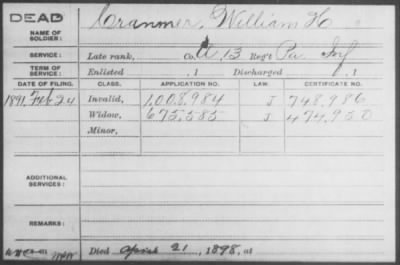 DEAD
NAME OF SOLDIER: Cranmer, William H
SERVICE: Late rank, Co. A, 13 Reg't Pa. Inf
TERM OF SERVICE: Enlisted , 1 Discharged , 1
DATE OF FILING. CLASS. APPLICATION NO. LAW. CERTIFICATE NO.
1891, Feb 24 Invalid, 1,008,984 J 748,986
Widow, 675,585 J 474,950
Minor,
ADDITIONAL SERVICES:
REMARKS:
Died April 21, 1898, at